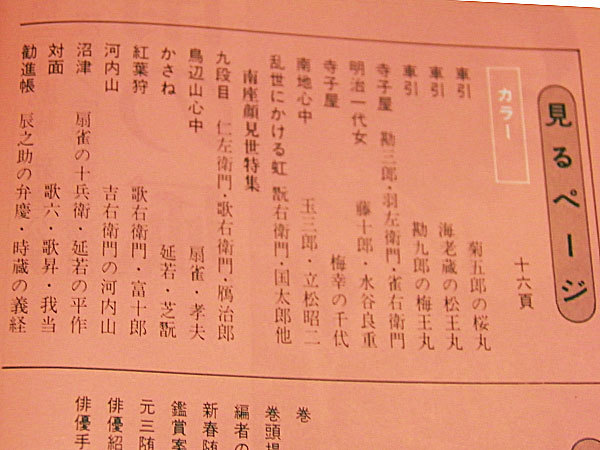 見るページ
カラー
十六頁
車引 菊五郎の桜丸
車引 海老蔵の松王丸
車引 勘九郎の梅王丸
寺子屋 勘三郎・羽左衛門・雀右衛門
明治一代女 藤十郎・水谷良重
寺子屋 梅幸の千代
南地心中 玉三郎・立松昭二
乱世にかける虹 翫右衛門・国太郎他
南座顔見世特集
九段目 仁左衛門・歌右衛門・鴈治郎
鳥辺山心中 扇雀 孝夫
かさね 延若・芝翫
紅葉狩 歌右衛門・富十郎
河内山 吉右衛門の河内山
沼津 扇雀の十兵衛・延若の平作
対面 歌六・歌昇・我当
勧進帳 辰之助の弁慶・時蔵の義経
巻
巻頭
編者の
新春随
鑑賞案
元三随
俳優紹
俳優手